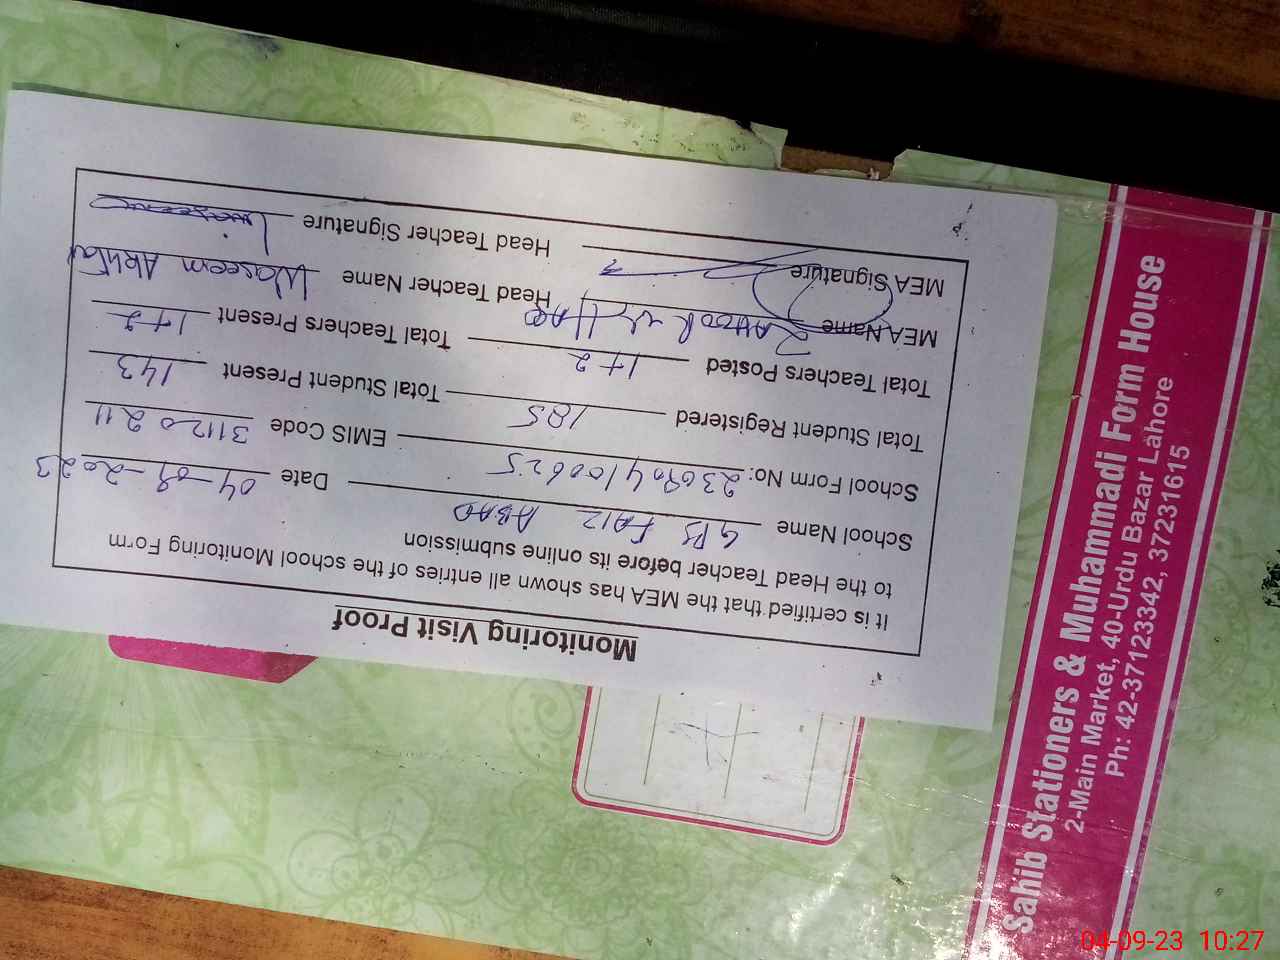 Monitoring Visit Proof
It is certified that the MEA has shown all entries of the school Monitoring Form
to the Head Teacher before its online submission
School Name GPS FAIZ ABAD Date 04-09-2023
School Form No: 230904100625 EMIS Code 31120211
Total Student Registered 185 Total Student Present 143
Total Teachers Posted 1+2 Total Teachers Present 1+2
MEA Name ul HAQ Head Teacher Name Waseem Akhtar
MEA Signature Head Teacher Signature Waseem
Sahib Stationers & Muhammadi Form House
2-Main Market, 40-Urdu Bazar Lahore
Ph: 42-37123342, 37231615
04-09-23 10:27